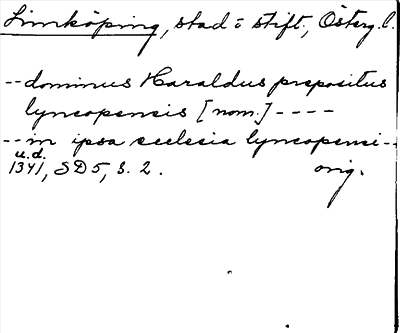 Linköping, stad o stift, Österg. l.
-- dominus Haraldus prepositus
lyncopensis [nom.] ----
-- in ipsa ecclesia lyncopensi --
u.d.
1341, SD5, s. 2. orig.